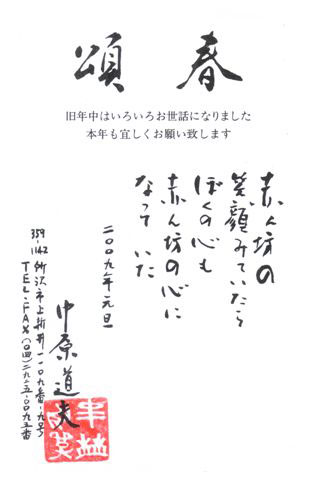 頌春
旧年中はいろいろお世話になりました
本年も宜しくお願い致します
赤ん坊の
笑顔みていたら
ぼくの心も
赤ん坊の心に
なって いた
二〇〇九年元旦
中原道夫
359-1142 所沢市上新井一一〇九番-九号
TEL・FAX(〇四)二九二五・〇〇九五番